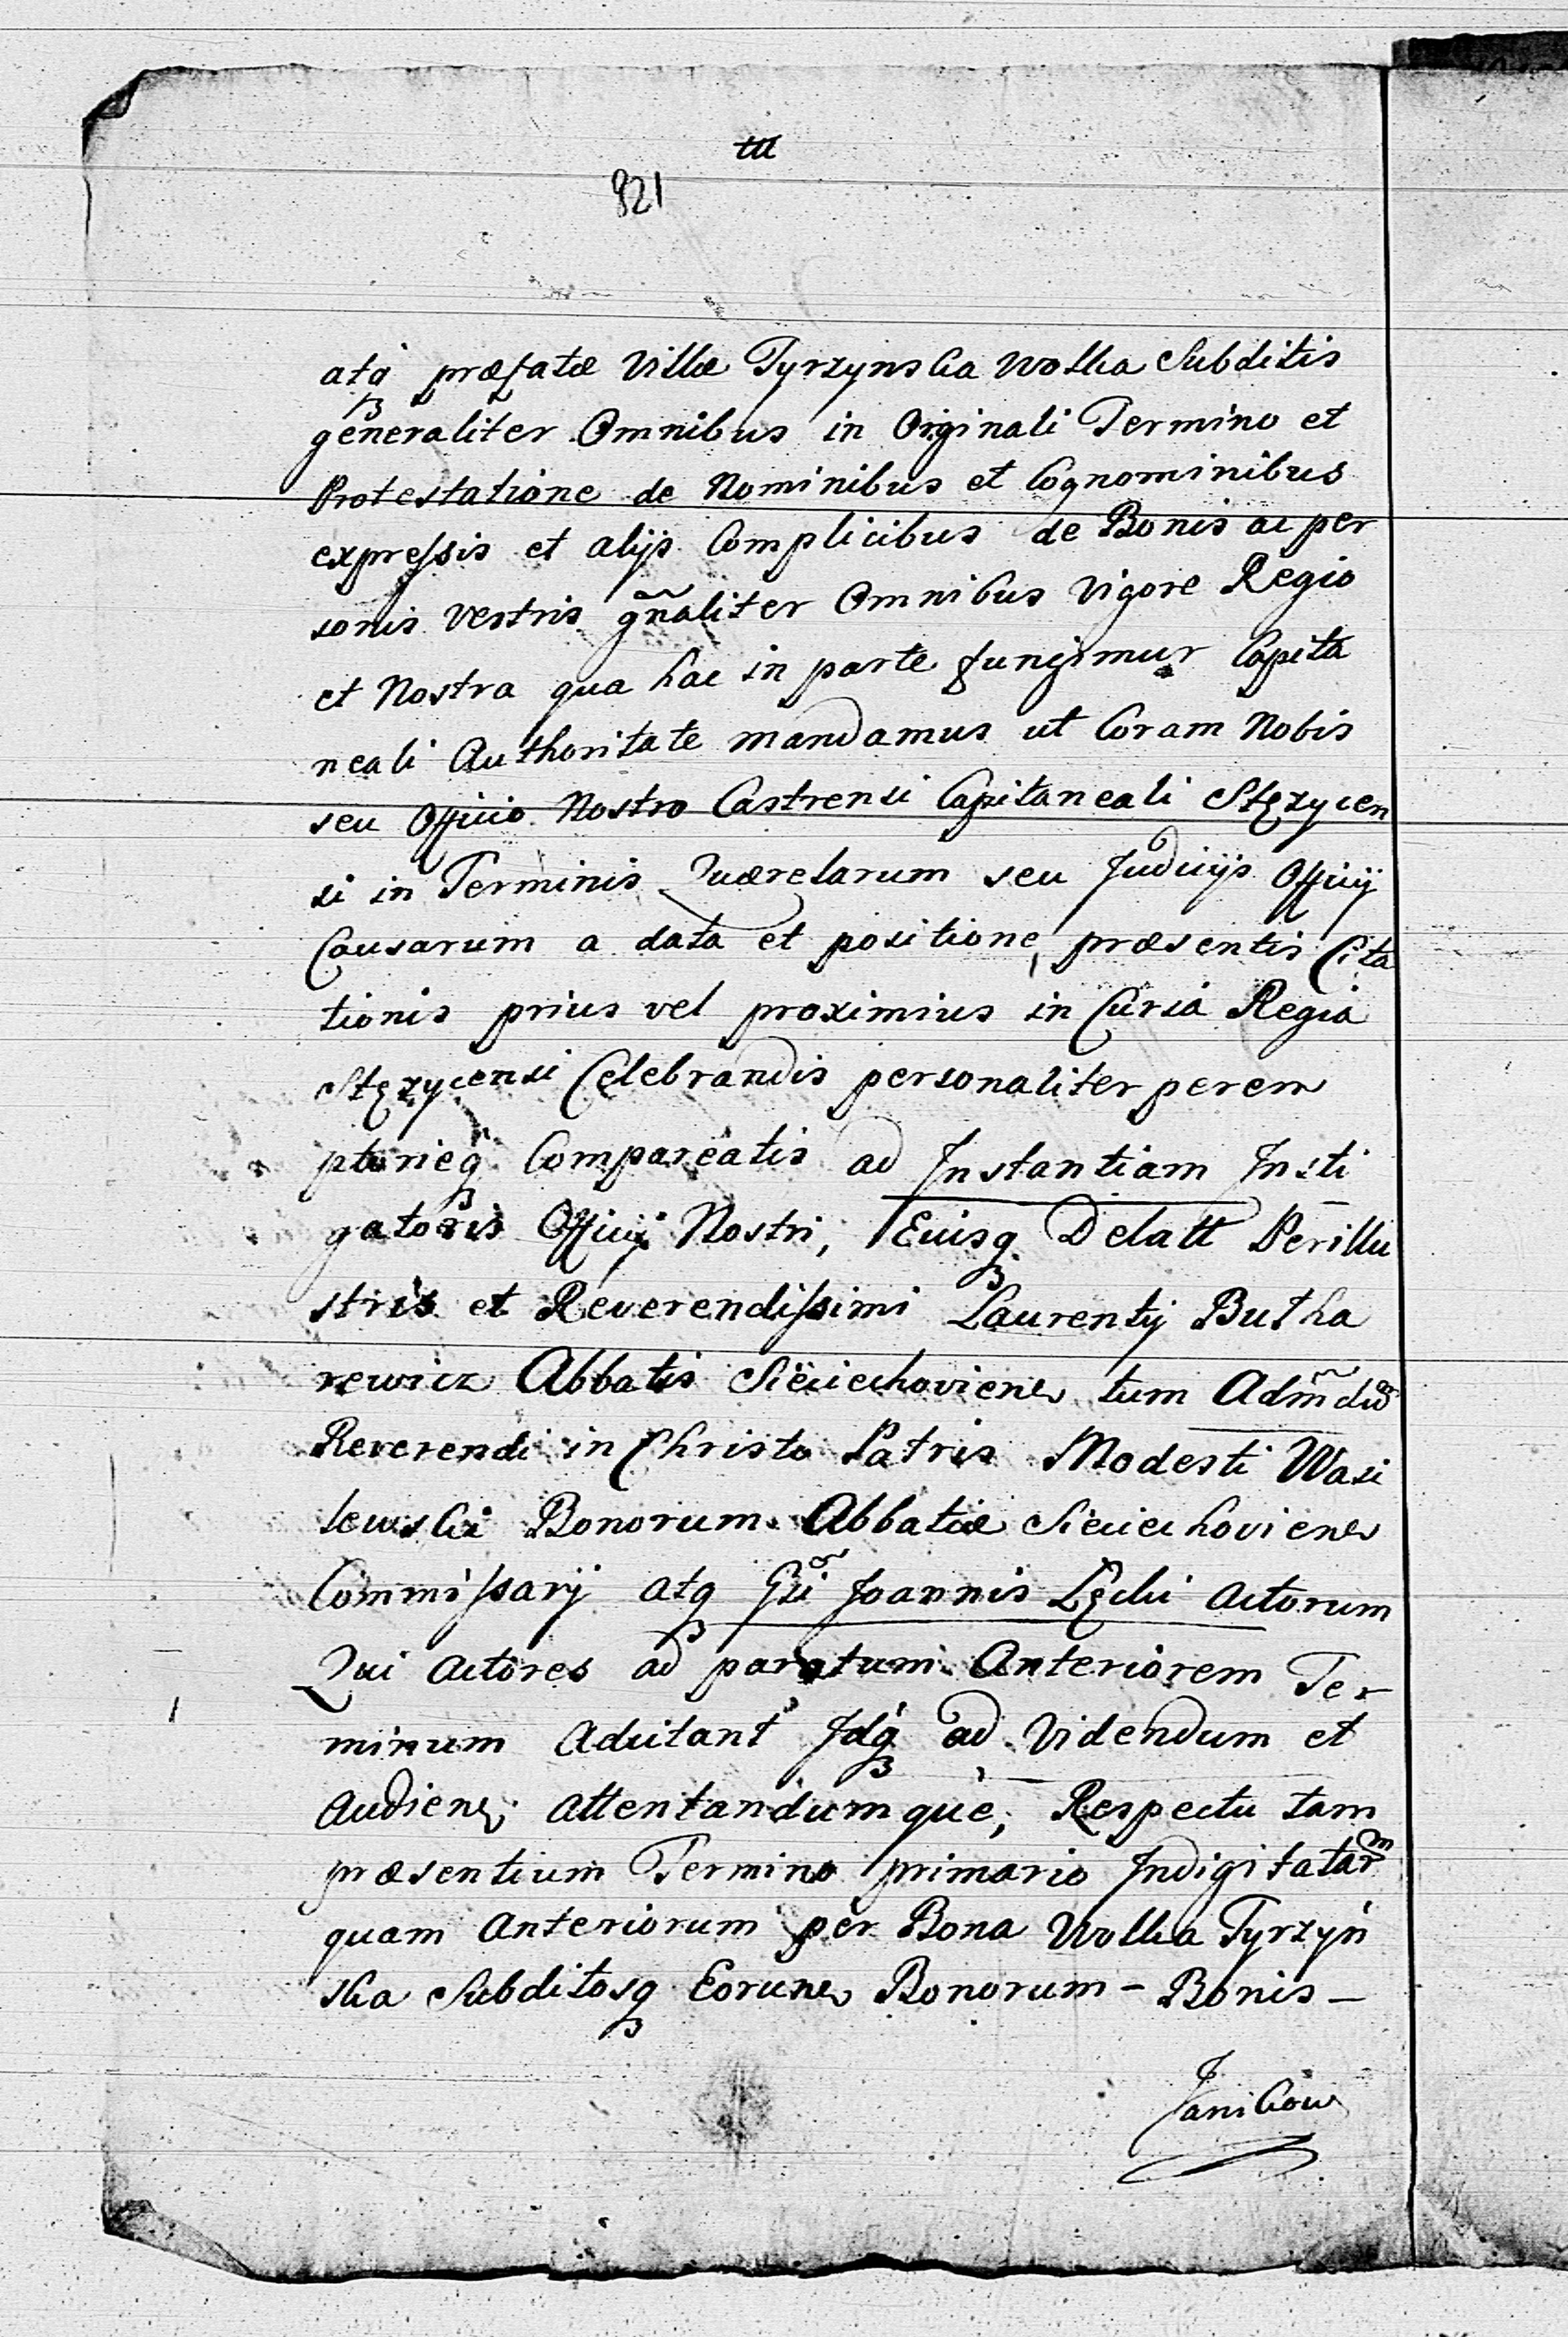 821
atq₃ præfatæ Villæ Tyrzynska Wolka Subditis
generaliter Omnibus in Originali Termino et
Protestatione de Nominibus et Cognominibus
expressis et alijs Complicibus de Bonis ac per
sonis vestris gn̄aliter Omnibus Vigore Regio
et Nostra qua hac in parte fungimur Capita
neali Authoritate mandamus ut Coram Nobis
seu Officio Nostro Castrensi Capitaneali Stęzycen
si in Terminis Quærelarum seu Judicijs Officij
Causarum a data et positione præsentis Cita
tionis prius vel proximius in Curia Regia
Stęzycensi Celebrandis personaliter perem
ptorieq₃ Compareatis ad Instantiam Insti
gatoris Officij Nostri, Eiusq₃ Delatt Perillu
stris et Reverendissimi Laurentij Butha
rewicz Abbatis Sieciechovien tum Adm̄du
Reverendi in Christo Patris Modesti Wasi
lewski Bonorum Abbatiæ Sieciechovien
Commissarij atq₃ Gsi Joannis Lęcki Actorum
Qui Actores ad paratum Anteriorem Ter
minum Adcitant Idq₃ ad Videndum et
Audien attentandumque, Respectu tam
præsentium Termino primario Indigitatarm
quam Anteriorum per Bona Wolka Tyrzyń
ska Subditosq₃ Eorun Bonorum - Bonis -
Janikow